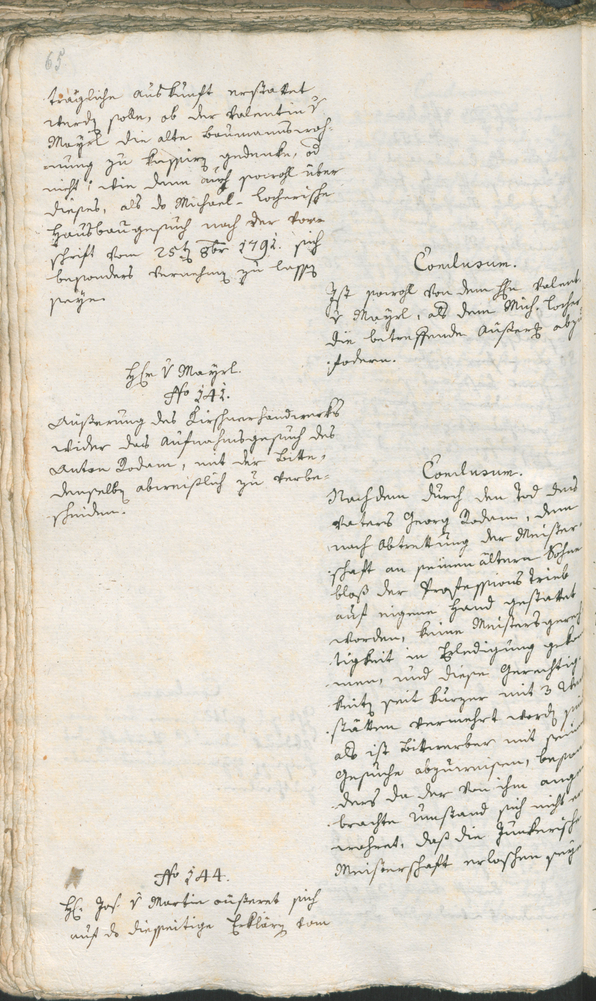 65
trägliche Auskunft erstattet
werden solle, ob der Valentin v
Mayrl die alte Baumannswoh-
nung zu kassiren gedenke, od
nicht; wie dann auch sowohl über
dieses, als das Michael-Locherische
Hausbaugesuch nach der Vor-
schrift vom 25ten 8br 1791. sich
besonders vernehmen zu lassen
seye.
Conclusum.
Ist sowohl von dem Hn Valent.
v Mayrl, als dem Mich. Locher
die betreffende Äußerung abzu-
fodern.
Hn v Mayrl.
No 141.
Äußerung des Kirschnerhandwerks
wider das Aufnahmsgesuch des
Anton Rodam, mit der Bitte,
denselben abweislich zu verbe-
scheiden.
Conclusum.
Nachdem durch den Tod des
Vaters Georg Rodam, dem
nach Abtrettung der Meister-
schaft an seinen ältern Sohne
bloß der Professionstrieb
auf eigene Hand gestattet
worden, keine Meistersgerech
tigkeit in Erledigung gekom
men, und diese Gerechtig-
keiten seit kurzer mit 3 Werk
stätten vermehrt worden
als ist Bittwerber mit seinem
Gesuche abzuweisen, beson
ders da der von ihm ange
brachte Umstand sich nicht
wahret, daß die Junkerische
Meisterschaft erloschen seye
No 144.
Hr Jos. v Martin äußeret sich
auf die diesseitige Erklärung vom